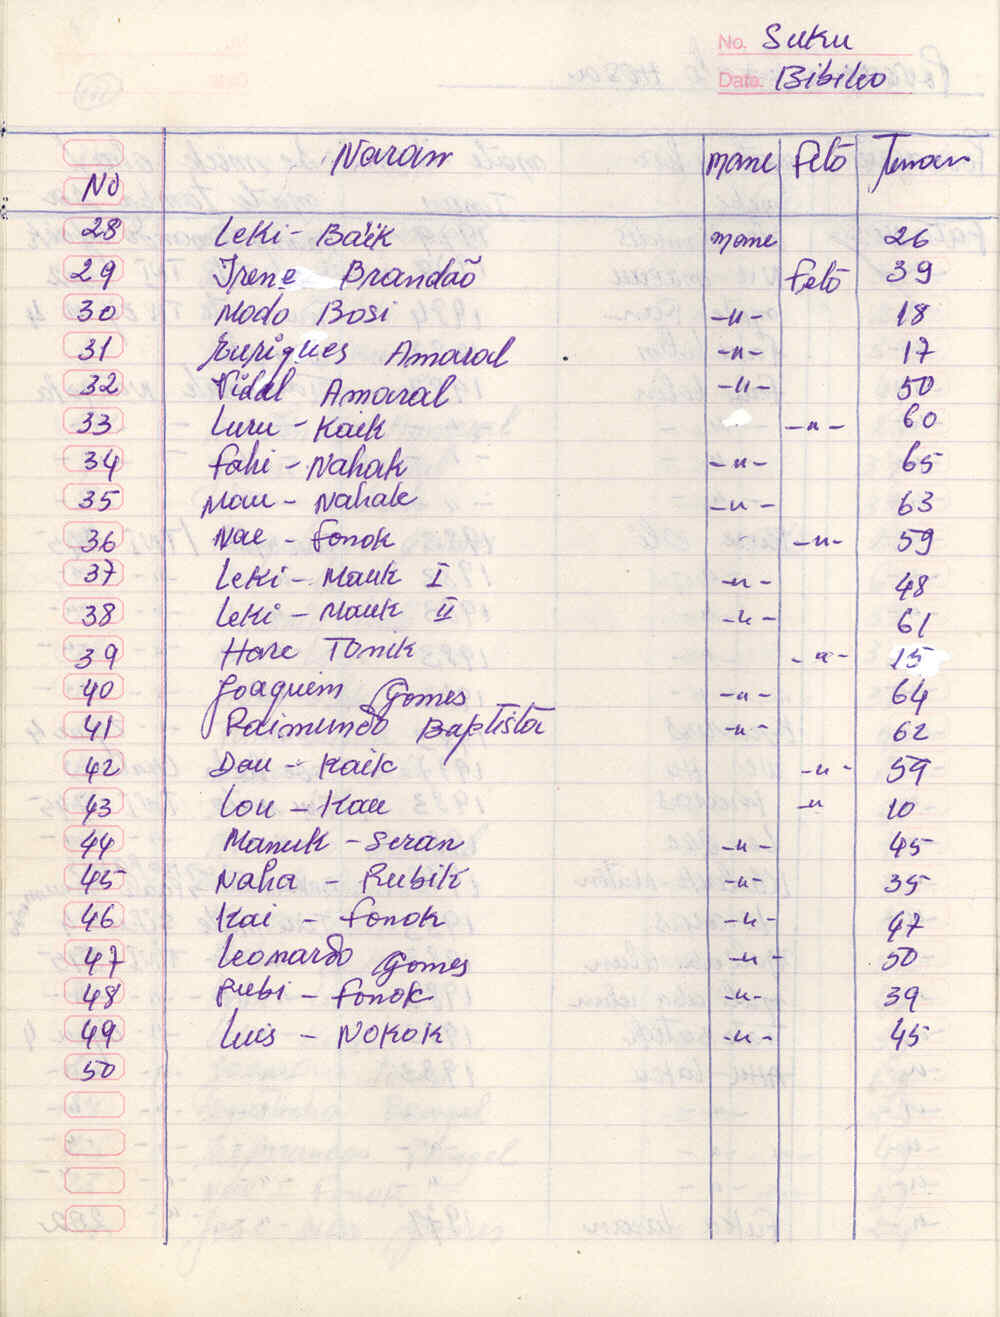 No. Suku
Date. Bibileo
No Naran mane feto Tinan
28 Leki - Baik mane 26
29 Irene Brandão feto 39
30 Modo Bosi -"- 18
31 Euriques Amaral -"- 17
32 Vidal Amaral -"- 50
33 Luru - Kaik -"- 60
34 Fahi - Nahak -"- 65
35 Mau - Nahak -"- 63
36 Nae - Fonok -"- 59
37 Leki - Mauk I -"- 48
38 Leki - Mauk II -"- 61
39 Hare Tonik -"- 15
40 Joaquim Gomes -"- 64
41 Raimundo Baptista -"- 62
42 Dau - Kaik -"- 59
43 Lou - Kau -" 10
44 Manuk - Seran -"- 45
45 Naha - Rubik -"- 35
46 Kai - Fonok -"- 47
47 Leonardo Gomes -"- 50
48 Rubi - Fonok -"- 39
49 Luis - Nokok -"- 45
50